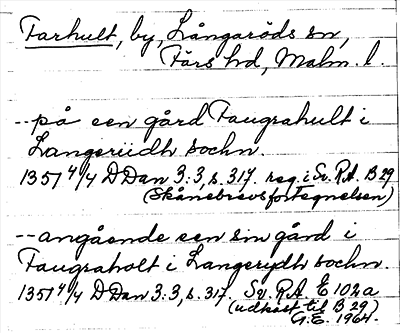 Farhult, by, Långaröds sn,
Färs hd, Malm. l.
--på een gård Faugrahult i
Langerüdh sochn.
1357 4/4 D Dan 3:3, s. 317. reg. i Sv. R.A. B 29
(Skånebrevsfortegnelsen)
--angående een sin gård i
Faugraholt i Langerydh sochn.
1357 4/4 D Dan 3:3, s. 317. Sv. R.A. E 102a
(udkast til B 29)
G.E. 1964.